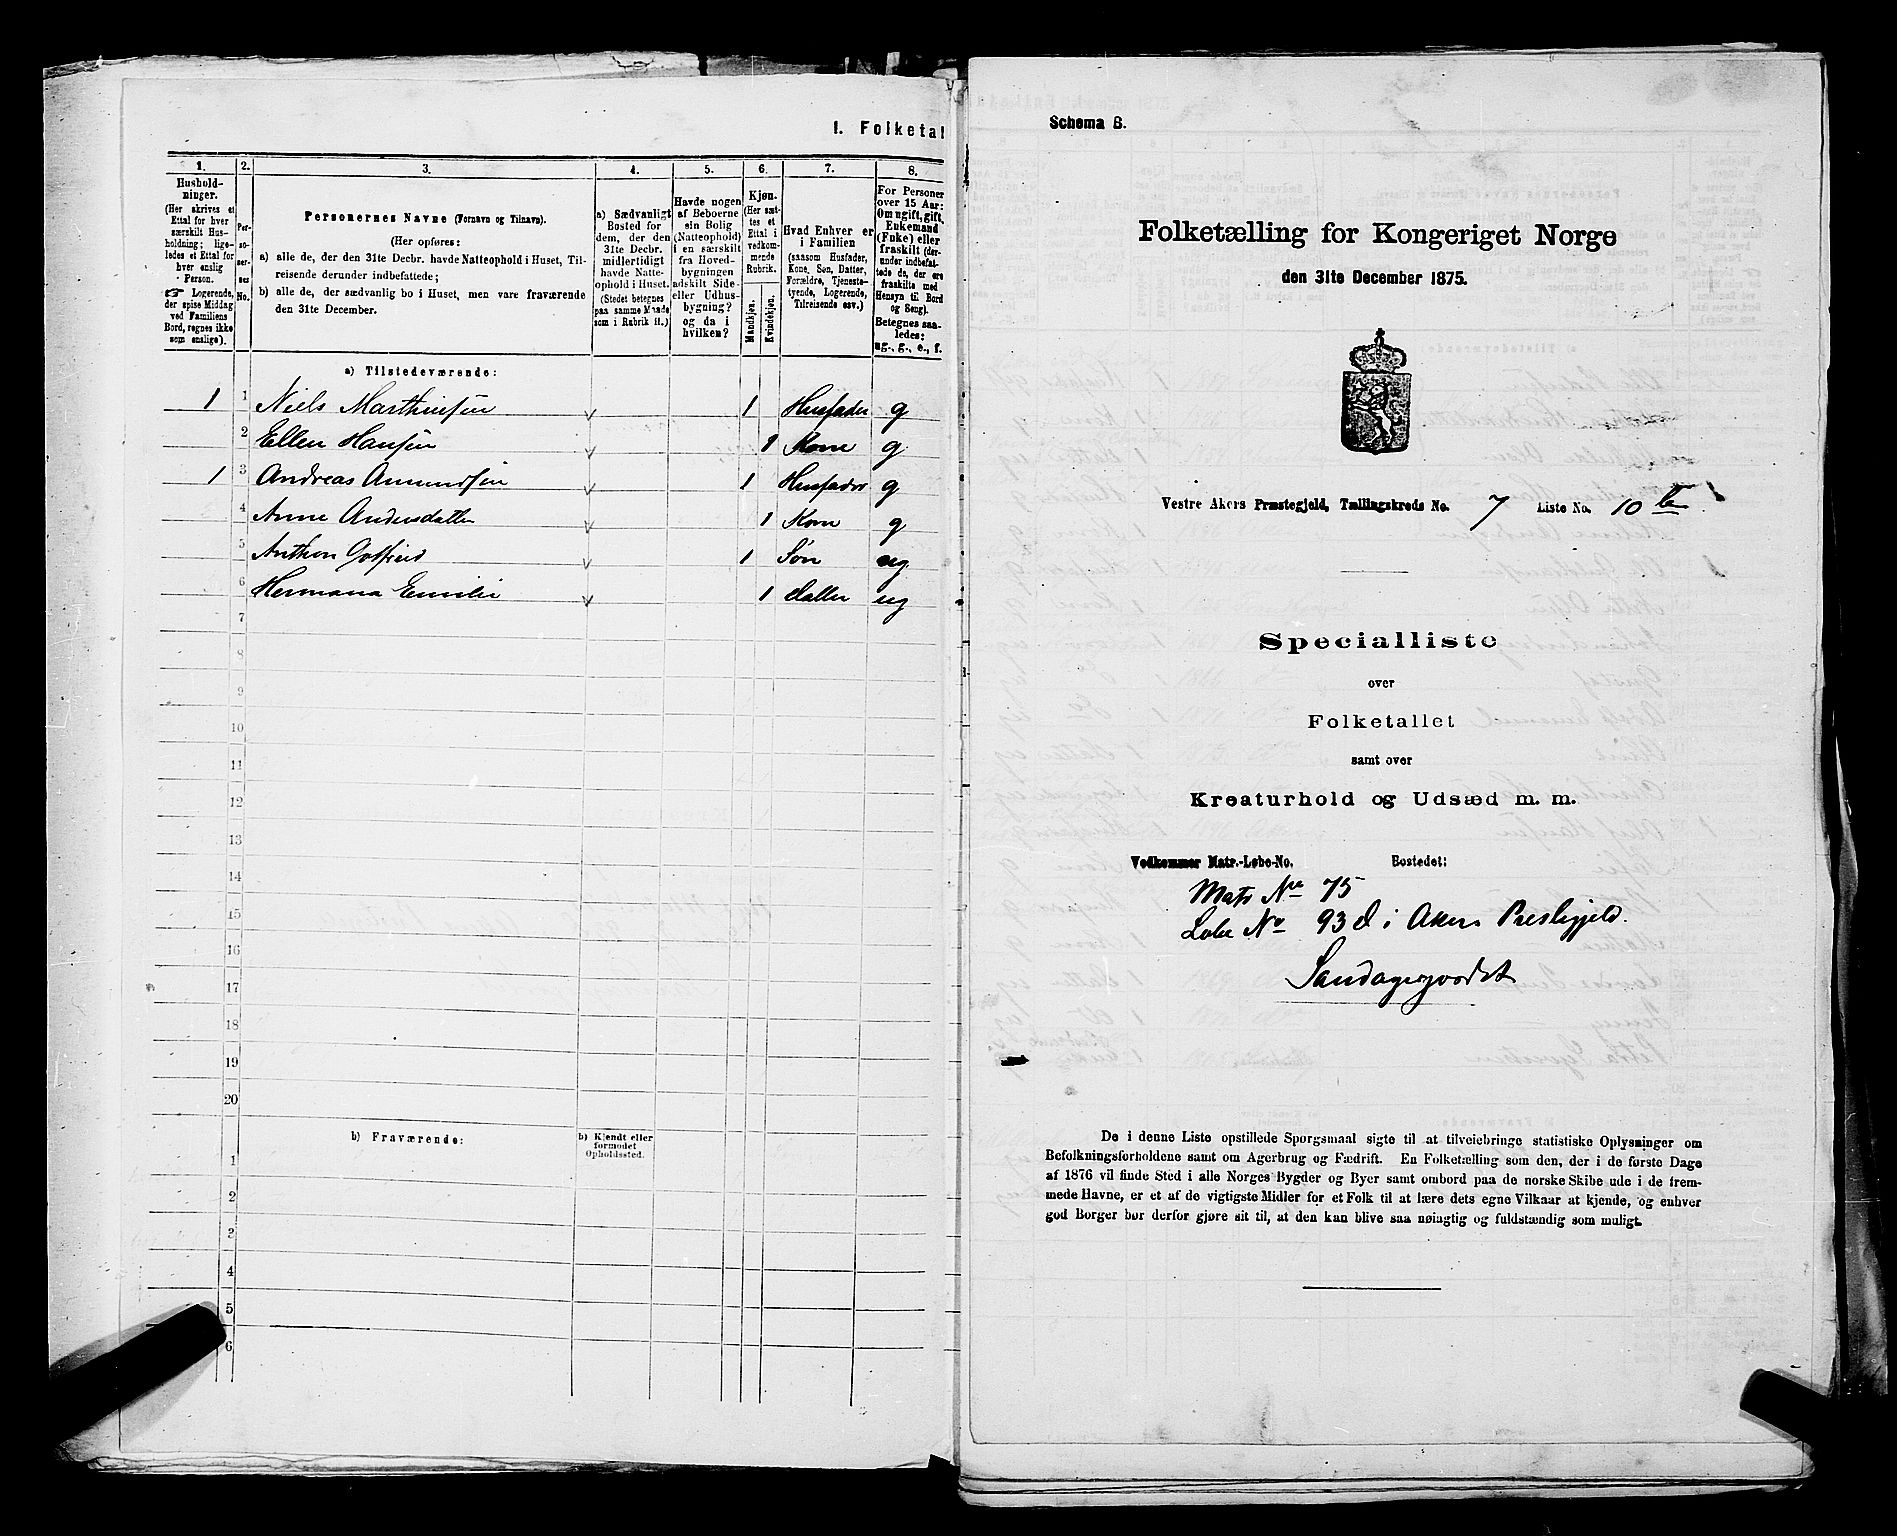 I. Folketal
1.
2.
3.
4.
5.
6.
7.
8.
Hushold-
ninger.
(Her skrives et
Ettal for hver
særskilt Hus-
holdning; lige-
ledes et Ettal for
hver enslig
Person.
☞ Logerende,
der spise Middag
ved Familiens
Bord, regnes ikke
som enslige).
Per-
so-
ner-
nes
No.
Personernes Navne (Fornavn og Tilnavn).
(Her opføres:
a) alle de, der den 31te Decbr. havde Natteophold i Huset, Til-
reisende derunder indbefattede;
b) alle de, der sædvanlig bo i Huset, men vare fraværende
den 31te December.
a) Sædvanligt
Bosted for
dem, der den
31te Decbr.
midlertidigt
havde Natte-
ophold i Huset.
(Stedet betegnes
paa samme Maade
som i Rubrik 11.)
Havde nogen
af Beboerne
sin Bolig
(Natteophold)
i en særskilt
fra Hoved-
bygningen
adskilt Side-
eller Udhus-
bygning?
og da i
hvilken?
Kjøn.
(Her sæt-
tes et
Ettal i
vedkom-
mende
Rubrik.
Mandkjøn.
Kvindekjøn.
Hvad Enhver er
i Familien
(saasom Husfader,
Kone, Søn, Datter,
Forældre, Tjeneste-
tyende, Logerende,
Tilreisende osv.)
For Personer
over 15 Aar:
Om ugift, gift,
Enkemand
(Enke) eller
fraskilt (der-
under indbefat-
tede de, der ere
fraskilte med
Hensyn til Bord
og Seng).
Betegnes saa-
ledes:
ug., g., e., f.
a) Tilstedeværende:
1 1 Niels Marthinsen 1 Husfader g
2 Ellen Hansen 1 Kone g
1 3 Andreas Amundsen 1 Husfader g
4 Anne Andersdatter 1 Kone g
5 Anthon Gotfried 1 Søn ug
6 Hermana Emilie 1 datter ug
7
8
9
10
11
12
13
14
15
16
17
18
19
20
b) Fraværende:
b) Kjendt eller
formodet
Opholdssted.
1
2
3
4
5
6
Schema B.
Folketælling for Kongeriget Norge
den 31te December 1875.
Vestre Akers Præstegjeld, Tællingskreds No. 7 Liste No. 10
Specialliste
over
Folketallet
samt over
Kreaturhold og Udsæd m. m.
Vedkommer Matr.-Løbe-No. Bostedet:
Matr No 75
Løbe No 93 d i Akers Prestegjeld.
Sandagergordet
De i denne Liste opstillede Spørgsmaal sigte til at tilveiebringe statistiske Oplysninger om
Befolkningsforholdene samt om Agerbrug og Fædrift. En Folketælling som den, der i de første Dage
af 1876 vil finde Sted i alle Norges Bygder og Byer samt ombord paa de norske Skibe ude i de frem-
mede Havne, er et af de vigtigste Midler for et Folk til at lære dets egne Vilkaar at kjende, og enhver
god Borger bør derfor gjøre sit til, at den kan blive saa nøiagtig og fuldstændig som muligt.